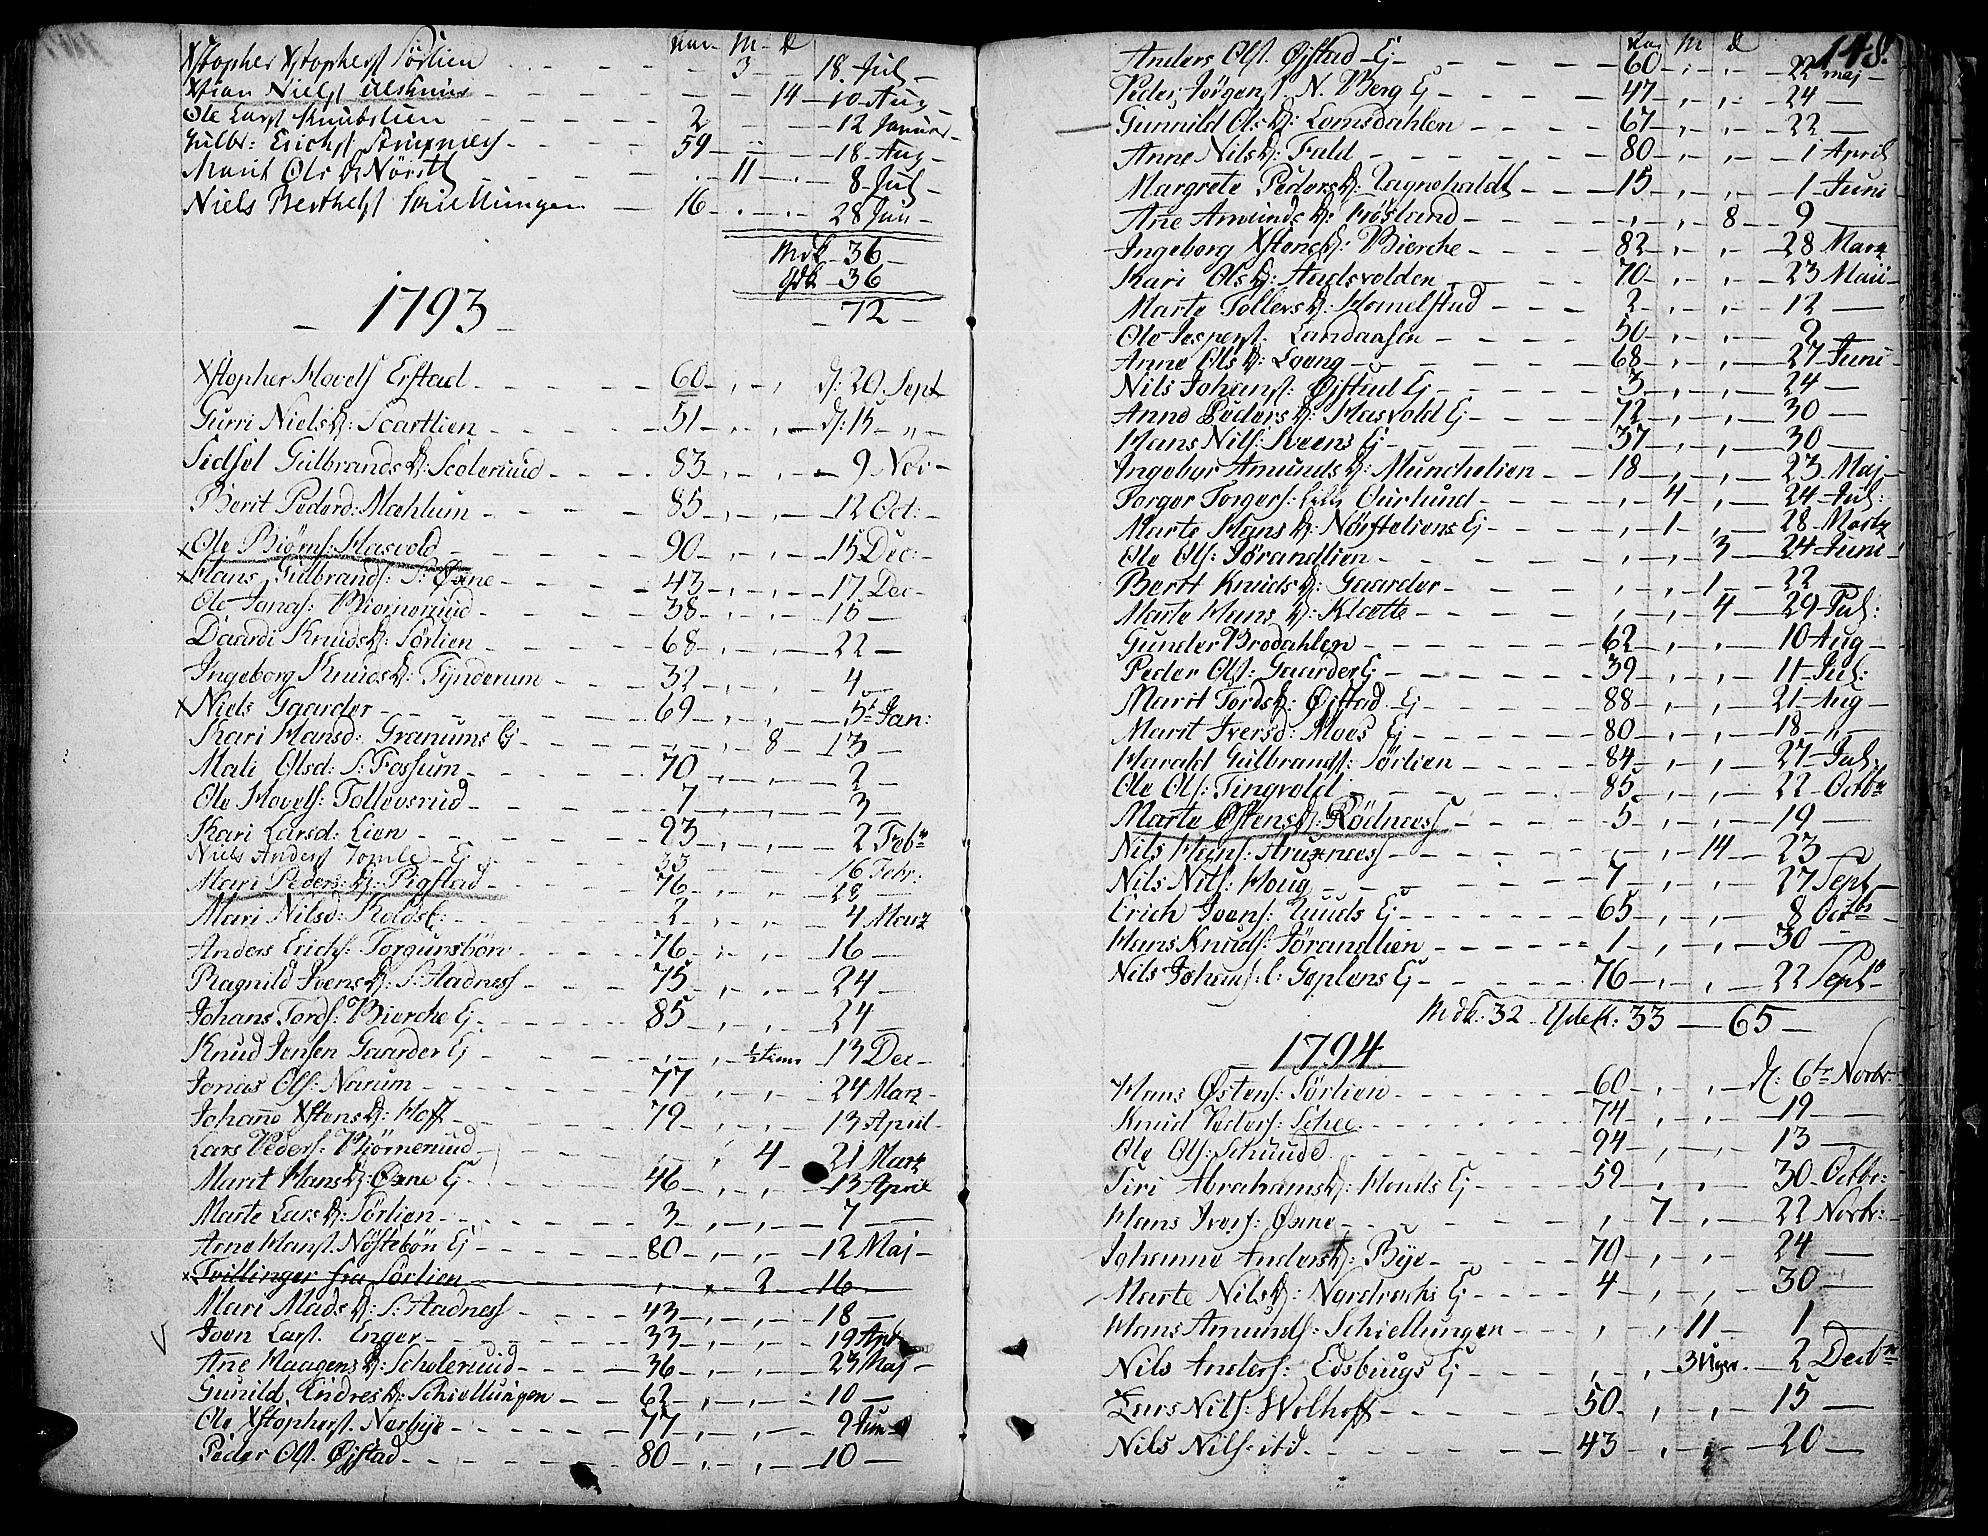 Xstopher Xstophers Sörlien - 3 - 18 Jul -
Xtian Niels - 14 - 10 Aug -
Ole Lars - 2 - 12 Januar -
Gulbr: Erichs - 59 - 18 Aug -
Marit Ols D: - 11 - 8 Jul -
Niels Berthels Schiellungen - 16 - 28 Jun -
Mdk - 36 -
Qdk - 36
- 72 -
- 1793 -
Xstopher Hovels Erstad - 60 - d: 20 Sept
Gurri Niels D: Scartlien - 51 - d: 15 - " -
Sidsel Gulbrands D: Scolerud - 83 - 9 Nov -
Berit Pederd: Mæhlum - 85 - 12 Oct: -
x Ole Biørns: Hasvold - 90 - 15 Dec: -
x Hans Gulbrands: S: Øxne - 43 - 17 Dec -
Ole Jonas: Biørnerud - 38 - 15 -
Knuds D: Sörlien - 68 - 22 -
Ingeborg Knuds D: Tynderum - 32 - 4 -
x Niels Gaarder - 69 - 5t Jan:
Kari Hansd: Granums Ej - 8 - 13 -
Mali Olsd: S: Fossum - 70 - 2 -
Ole Hovels: Tollevsrud - 7 - 3 -
Kari Larsd: Lien - 23 - 2 Febr
Niels Anders Tomle - Ej - 33 - 16 Febr:
Mari Peders: D: Pigstad - 76 - 28 -
Mari Nilsd: - 2 - 4 Marz
Anders Erichs: - 76 - 16 -
Ragnild Ivens D: S: Aadness - 75 - 24 -
Johans Tords: Bierche Ej - 85 - 24 -
Knud Jensen Gaarder Ej - ½ time 13 Dec -
Jonas Ols: Narum - 77 - 24 Marz -
Johane Xstens D: Hoff - 79 - 13 April -
Lars Peders: Biörnerud - 4 - 21 Martz
Marit Hans D: Øxne Ej - 46 - 13 April
Marte Lars D: Sörlien - 3 - 7 -
Arne Hans Nøstebön Ej - 80 - 12 Maj -
x Tvillinger fra Sörlien - 2 - 16 -
Mari Mads D: S: Aadness - 43 - 18 -
Joen Lars. Enger - 33 - 19 Apr
Ane Haagens D: Scholerud - 36 - 23 Maj -
Gunild Endres D: Schiellungen - 62 - 10 -
Ole Xstophers. Nørbye - 77 - 9 Jun
Peder Ols. Øistad - 80 - 10 -
148.
Anders Ols. Øistad - Ej - 60 - 22 Maj -
Peder Jörgens. N. Berg Ej - 47 - 24 -
Gunnild Ols D: Lomsdahlen - 67 - 22 -
Anne Nils D: Fald - 80 - 1 April
Margrete Peders D: - 15 - 1 Juni
Ane Amunds D: Frösland - 8 - 9 -
Ingeborg Xstens D: Bierche - 82 - 28 Marz
Kari Ols D: Audsvolden - 70 - 23 Maii -
Marte Tollevs D: Homelstad - 2 - 12 -
Ole Jespers. Landaasen - 50 - 9 -
Anne Ols D: Loeng - 68 - 27 Juni -
Nils Johans: Øistad Ej - 3 - 24 -
Anne Peders D: Hasvold Ej - 72 - 30 -
Hans Nils: Sveens Ej - 37 - 30 -
Ingebor Amunds D: Munchelien - 18 - 23 Maj -
Torger Torgers: - 4 - 24 - Jul:
Marte Hans D: Nörsteliens Ej - 1 - 28 - Martz
Ole Ols: Sörandlien - 3 - 24 Juni -
Berit Knuds D: Gaarder - 1 - 22 -
Marte Hans D: Klætte - 4 - 29 Jul:
Gunder Brodahlen - 62 - 10 Aug -
Peder Ols: Gaarder Ej - 39 - 11 - Jul:
Marit Tords D: Øistad - Ej - 88 - 21 - Aug -
Marit Iversd: Moes Ej - 80 - 18 -
Harald Gulbrands: Sörlien - 84 - 27 - Jul.
Ole Ols: Tingvold - 85 - 22 - Octbr
Marte Østens D: Rödness - 5 - 19 -
Nils Hans: - 14 - 23 -
Nils Nils: Houg - 7 - 27 Sept -
Erich Ivens: Ruuds Ej - 65 - 8 Octbr -
Hans Knuds: Sörandlien - 1 - 30 -
Nils Johans: Goplens Ej - 76 - 22 Septb
Mdk: 32 - Qdek: 33 - 65 -
- 1794 -
Hans Østens: Sörlien - 60 - d: 6te Novbr:
Knud Peders: Schee - 74 - 19 -
Ole Ols: - 94 - 13 -
Siri Abrahams D: Honds Ej - 59 - 30 - Octbr:
Hans Ivers: Øxne - 7 - 22 Novbr: -
Johanne Anders D: Bye - 70 - 24 -
Marte Nils D: Ej - 4 - 30 -
Hans Amunds: Schiellungen - 11 - 1 -
Nils Anders: Ej - 3 Uger. - 2 Decbr
Lars Nils: Wolhoff - 50 - 15 -
Nils Nils: itd - 43 - 20 -